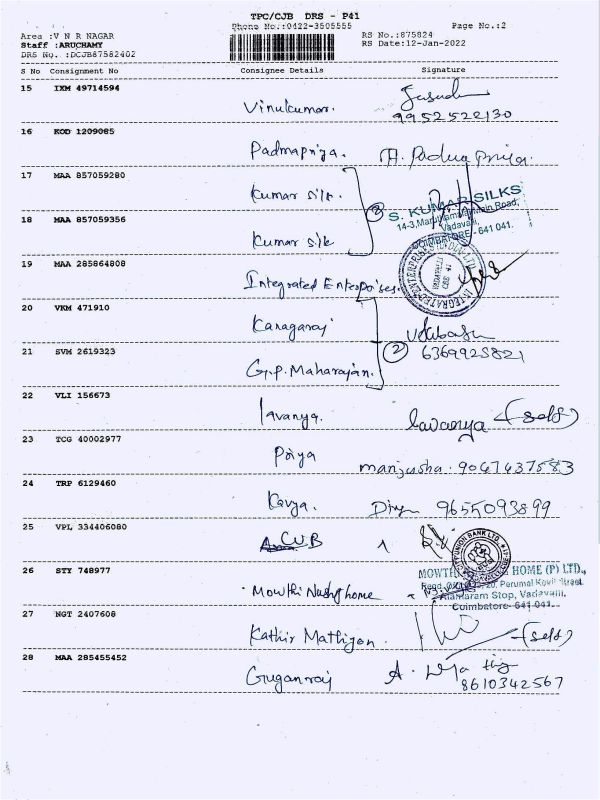 TPC/CJB DRS - P41
Phone No.:0422-3505555 Page No.:2
Area :V N R NAGAR RS No.:875824
Staff :ARUCHAMY RS Date:12-Jan-2022
DRS No. :DCJB87582402
S No Consignment No Consignee Details Signature
15 IXM 49714594
Vinukumar.
9952522130
16 KOD 1209085
Padmapriya. A. Padma priya.
17 MAA 857059280
Kumar silk.
S. KUMAR SILKS
18 MAA 857059356
Vadavalli,
COIMBATORE - 641 041.
Kumar silk
19 MAA 285864808
Integrated Enterprises.
20 VKM 471910
Kanagaraj
21 SVM 2619323
2 6369925821
G.P. Maharajan.
22 VLI 156673
lavanya. lavanya (self)
23 TCG 40002977
Priya manjusha. 9047437583
24 TRP 6129460
Kavya. Divya 9655093899
25 VPL 334406080
CUB
26 STY 748977
HOME (P) LTD.,
Perumal Kovil Street
Stop, Vadavalli,
Coimbatore- 641 041.
Mowthi Nushg home
27 NGT 2407608
Kathir Mathijon. (self)
28 MAA 285455452
Guganraj
8610342567